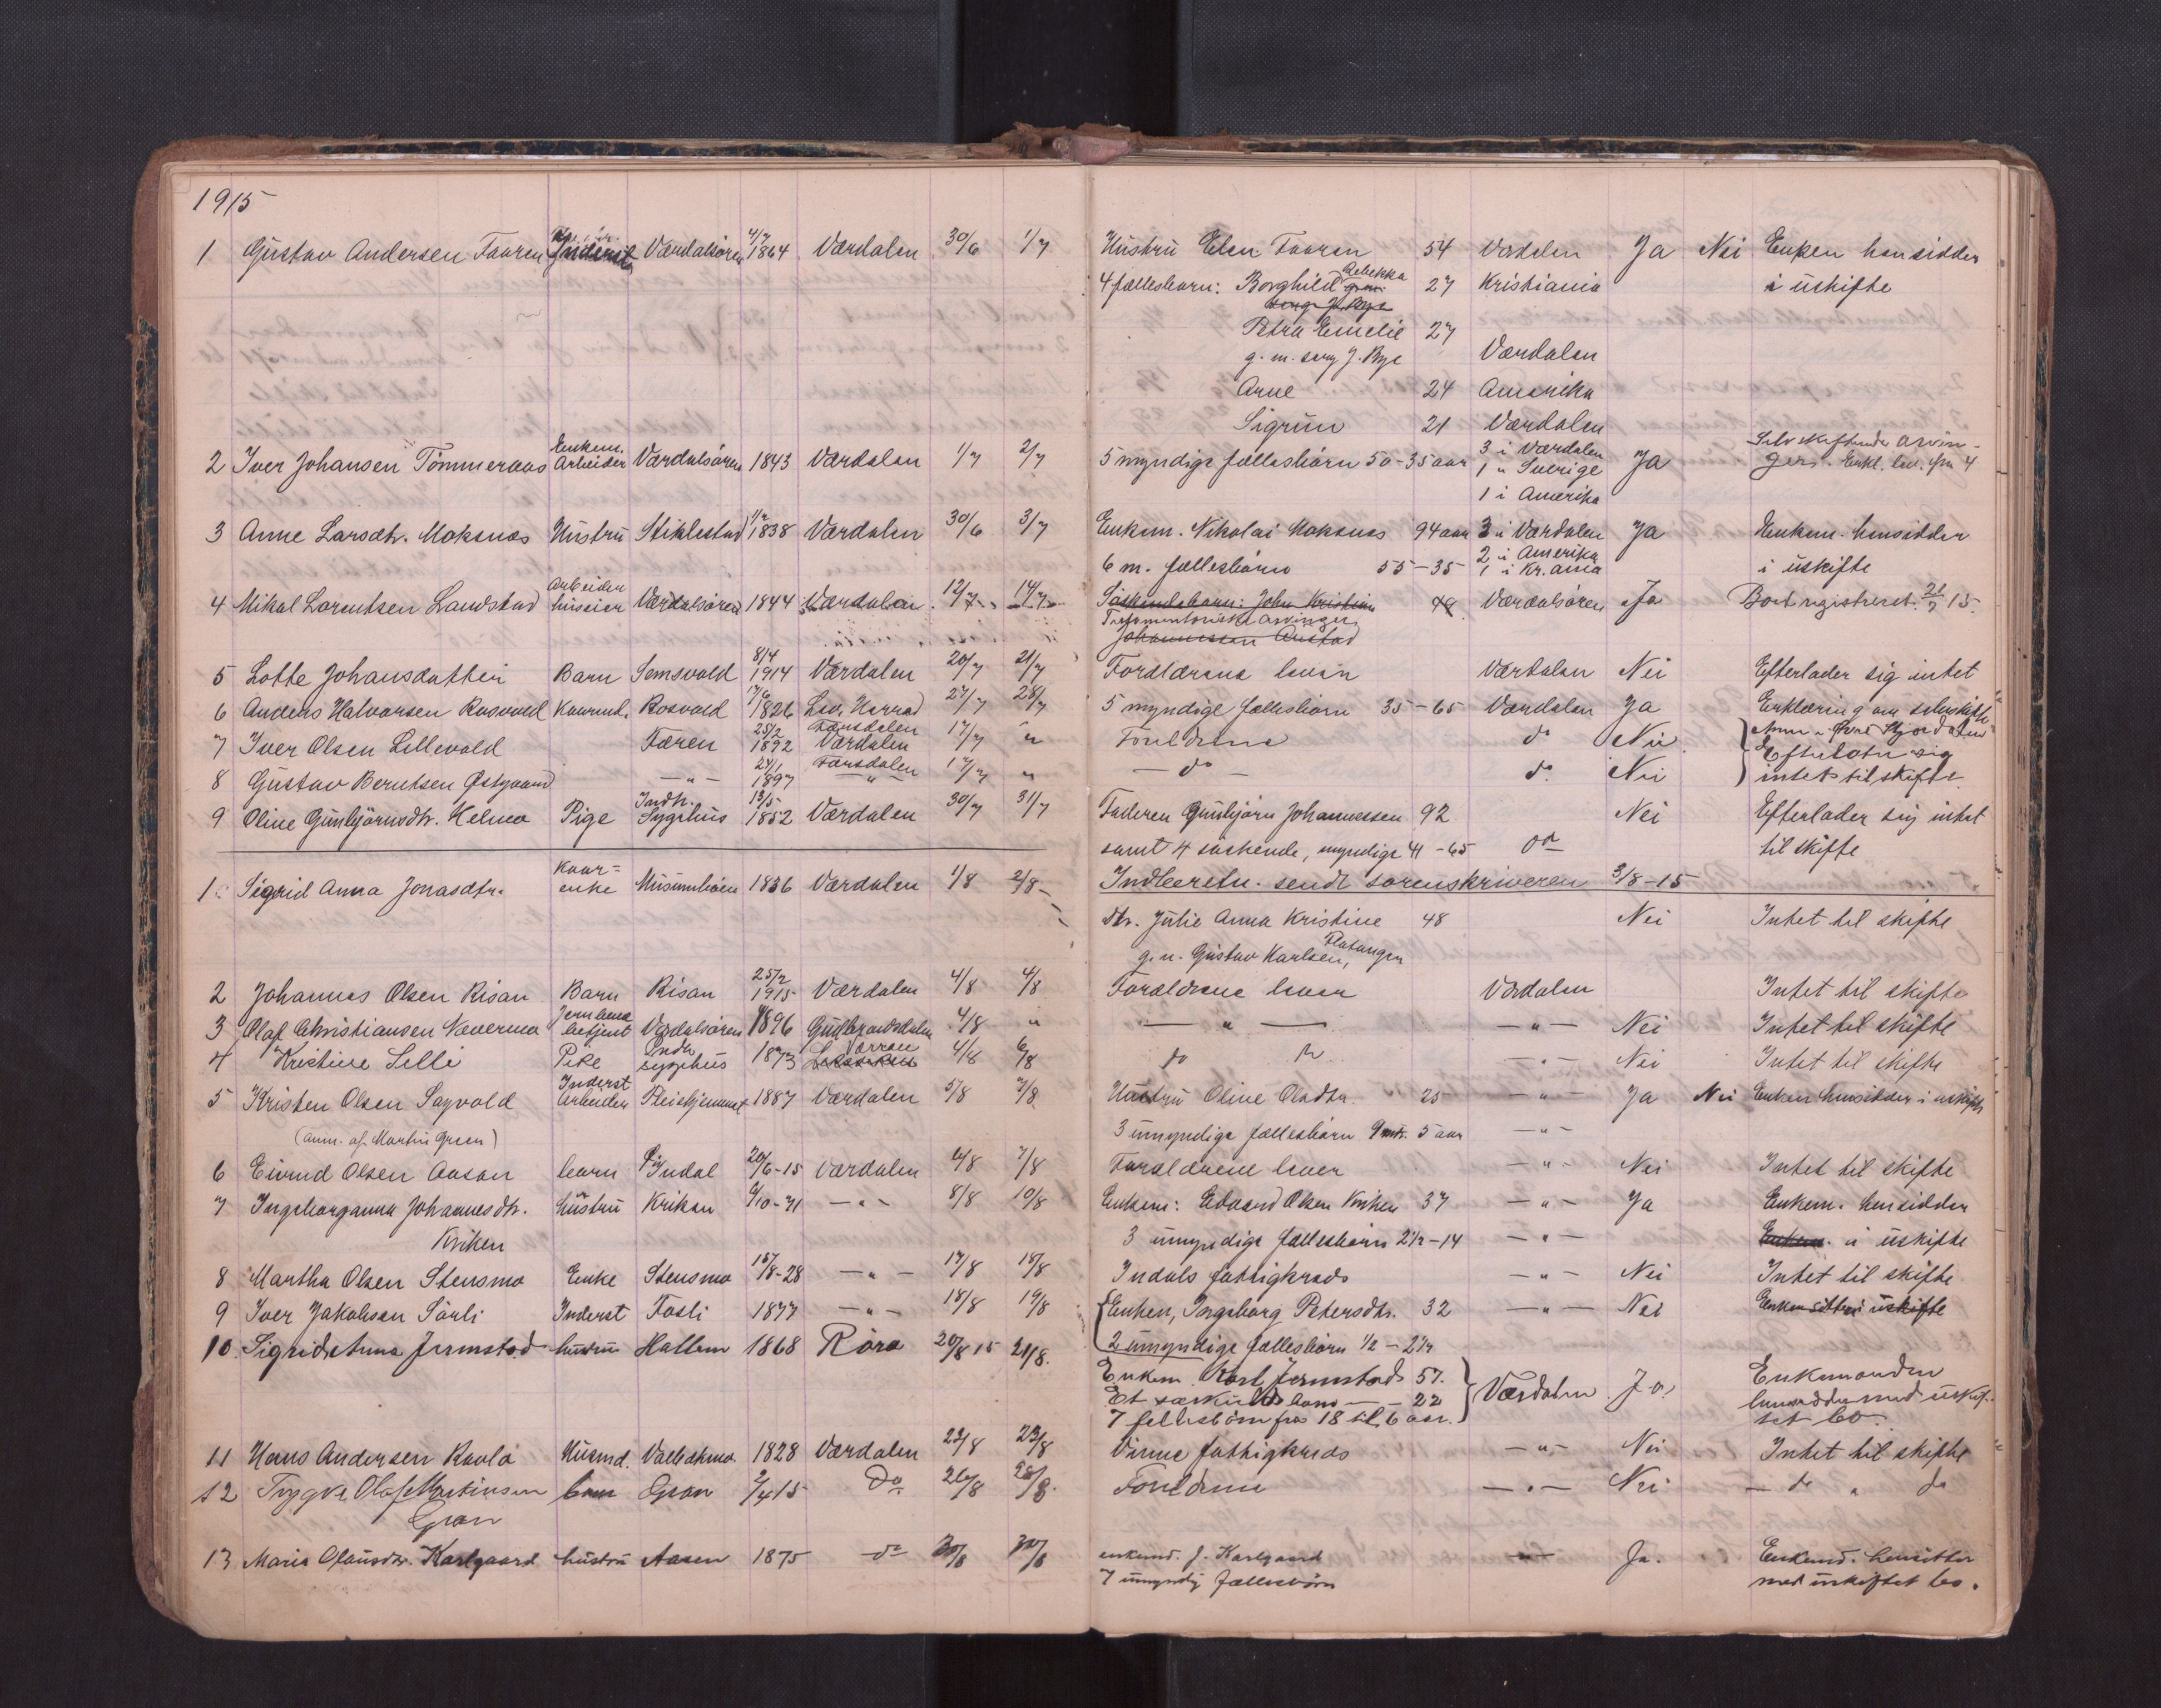 1915
1 Gustav Andersen Faaren Inderst Værdalsören 4/7 1864 Værdalen 30/6 1/7 Hustru Elen Faaren 54 Værdalen Ja Nei Enken hensidder
4 fællesbarn: Borghild Rebekka 27 Kristiania i uskifte
Petra Emelie 27
g. m. J. Bye Værdalen
Arne 24 Amerika
Sigrun 21 Værdalen
2 Iver Johansen Tömmeraas Enkem. Arbeider Værdalsören 1843 Værdalen 1/7 2/7 5 myndige fællesbörn 50-35 aar 3 i Værdalen Ja
1 " Sverige
1 i Amerika
3 Anne Larsdtr. Moksnes Hustru Stiklestad 1838 Værdalen 30/6 3/7 Enkem. Nikolai Moksnes 94 aar 3 i Værdalen Ja Enkem. hensidder
6 m. fællesbörn 55-35 2 i Amerika 1 i Kr.ania i uskifte
4 Mikal Lorentsen Landstad Arbeider huseier Værdalsören 1844 Værdalen 12/7 14/7 Söskendebarn: John Kristian Værdalsören Ja Boet registreret 21/7 15.
Testamentariske arvinger
Johannessen Austad
5 Lotte Johansdatter Barn Semsvold 8/4 1914 Værdalen 20/7 21/7 Forældrene lever Værdalen Nei Efterlader sig intet
6 Anders Halvorsen Rosvold Kaarmd. Rosvold 17/6 1826 Lev. Herred 27/7 28/7 5 myndige fællesbörn 35-65 Værdalen Ja Erklæring om selvskifte
7 Iver Olsen Lillevold Færen 25/2 1892 Værdalen 17/7 " Forældrene do Nei
8 Gustav Berntsen Østgaard — " — 24/1 1897 — " — 17/7 " — do — do Nei intet til skifte
9 Oline Gunbjörnsdtr. Helmo Pige Indh. Sygehus 13/5 1852 Værdalen 30/7 31/7 Faderen Gunbjörn Johannessen 92 Nei Efterlader sig intet
samt 4 söskende, myndige 41-65 do til skifte
Indberetn. sendt sorenskriveren 3/8-15
1 Sigrid Anna Jonasdtr. Kaar= enke 1836 Værdalen 1/8 2/8
Dtr. Julie Anna Kristine 48 Nei Intet til skifte
g. m. Gustav Karlsen, Flatanger
2 Johannes Olsen Risan Barn Risan 25/2 1915 Værdalen 4/8 4/8 Forældrene lever Værdalen Intet til skifte
3 Olaf Christiansen Næverma Jernbane betjent Værdalsören 1896 Gudbrandsdalen 4/8 " — " — — " — Nei Intet til skifte
4 Kristine Lilli Pike Indh. sygehus 1873 4/8 6/8 do — " — Nei Intet til skifte
5 Kristen Olsen Sagvold Inderst Arbeider Pleiehjemmet 1887 Værdalen 5/8 7/8 Hustru Oline Olsdtr. 25 — " — Ja Nei Enken hensidder i uskifte
(anm. af Martin Green) 3 umyndige fællesbörn 9 mdr. 5 aar — " —
6 Eivind Olsen Aasan barn Indal 20/6-15 Værdalen 4/8 7/8 Forældrene lever — " — Nei Intet til skifte
7 Ingeborganna Johannesdtr. hustru Kriken 6/10-71 — " — 8/8 10/8 Enkem: Edvard Olsen Kriken 37 — " — Ja Enkem. hensidder
Kriken 3 umyndige fællesbörn 2½-14 — " — i uskifte
8 Martha Olsen Stensmo Enke Stensmo 15/8-28 — " — 17/8 18/8 Indals fattigkreds — " — Nei Intet til skifte
9 Iver Jakobsen Sörli Inderst Fosli 1877 — " — 18/8 19/8 Enken, Ingeborg Petersdtr. 32 — " — Nei Enken sitter i uskifte
2 umyndige fællesbörn ½ - 2½
10 Sigrid Anna Jermstad hustru Hallem 1868 Röra 20/8 15 21/8. Enkem Karl Jermstad 57. Værdalen Ja Enkemanden
Et særkuldsbarn — 22
7 fellesbörn fra 18 til 6 aar.
11 Hans Andersen Husmd. 1828 Værdalen 22/8 23/8 Vinne fattigkreds — " — Nei Intet til skifte
12 Trygve Olaf Martinsen barn Gran 2/4 15 Do 26/8 28/8. Foreldrene — " — Nei — do " do
Gran
13 Maria Olausdtr. Karlgaard hustru Aasen 1875 do 30/8 30/8 enkemd. J. Karlgaard — " — Ja. Enkemd. hensitter
7 umyndig fællesbörn med uskiftet bo.